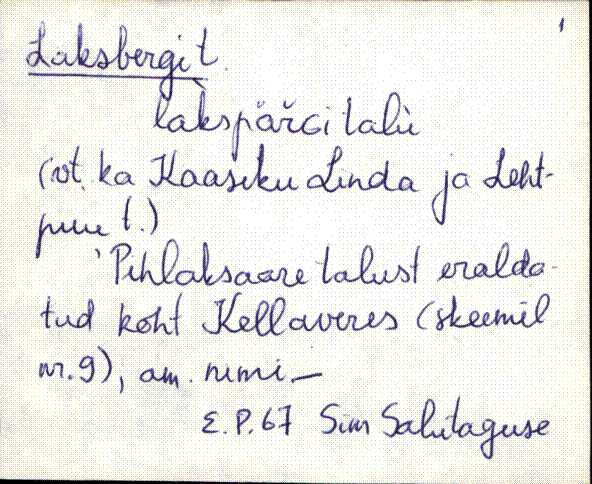 1
Laksbergi t.
lakspärci talù
(vt. ka Kaasiku Linda ja Leht-
puu t.)
Pihlaksaare talust eralda-
tud koht Kellaveres (skeemil
nr. 9), am. nimi –
E.P. 67 Sim Salutaguse